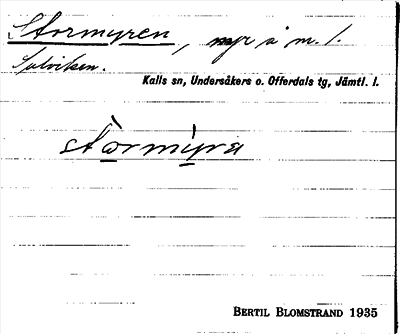 Stormyren, myr å m. l.
Solviken.
Kalls sn, Undersåkers o. Offerdals tg, Jämtl. l.
stòrmýra
BERTIL BLOMSTRAND 1935